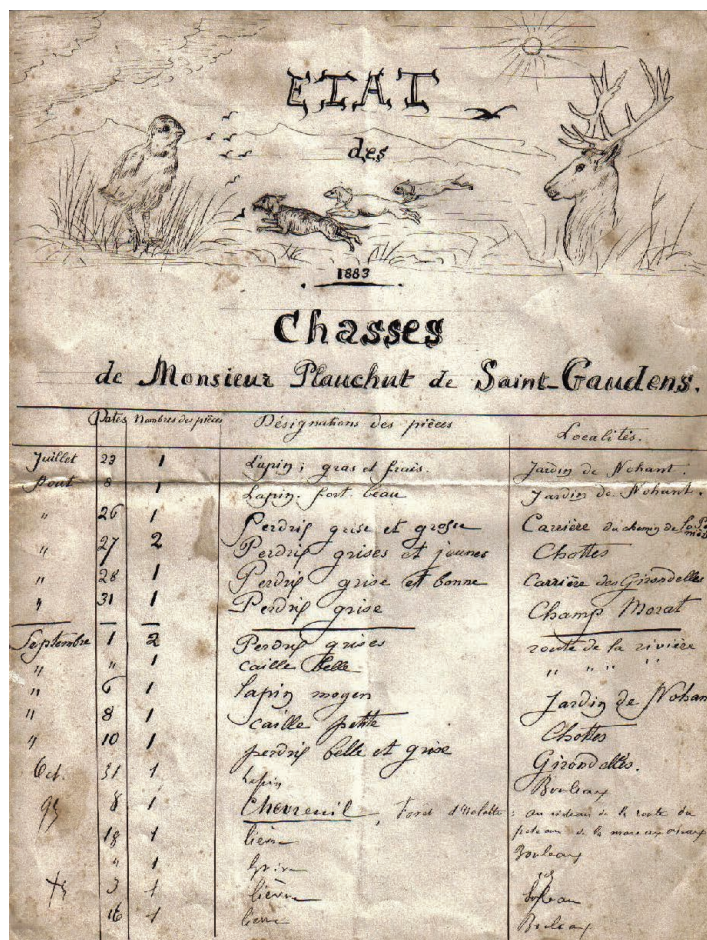 ETAT
des
1883
Chasses
de Monsieur Plauchut de Saint-Gaudens.
Dates Nombres des pièces Désignations des pièces Localités.
Juillet 23 1 Lapin : gras et frais. Jardin de Nohant.
Aout 8 1 Lapin. fort beau Jardin de Nohant.
" 26 1 Perdrix grise et grosse Carrière du chemin de
" 27 2 Perdrix grises et jeunes Chottes
" 28 1 Perdrix grise et bonne Carrière des Girondelles
" 31 1 Perdrix grise Champ Morat
Septembre 1 2 Perdrix grises route de la rivière
" " 1 caille belle " " " "
" 6 1 lapin moyen Jardin de Nohan
" 8 1 caille petite Chottes
" 10 1 perdrix belle et grise Girondelles.
Oct. 31 1 Lapin Bouleaux
8 1 Chevreuil, Foret d'Halatte : au de la route du
poteau de la mare aux oiseaux
18 1 lièvre Bouleaux
" 1
3 1 lièvre
16 1 lièvre Bouleaux